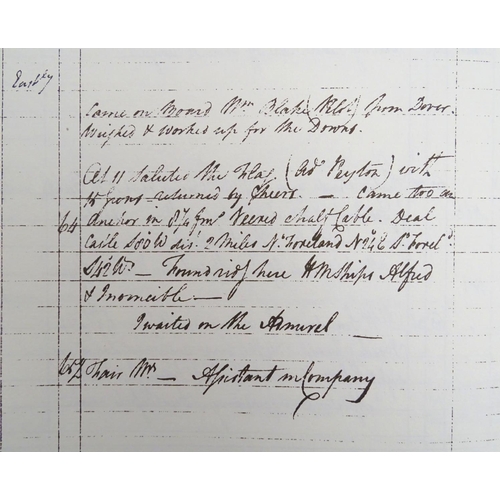 East.ly
Came on Board Wm. Blake (Pilot) from Dover.
Weighed & worked up for the Downs.
At 11 Saluted the Flag (Adl. Peyton) with
Guns returned by Cheers. — Came too an
64 Anchor in 8¼ fms. Veered half Cable. Deal
Castle S60W dis. 2 Miles No. Foreland N24E So. Forel'd
S42W — Found rid'g here HM Ships Alfred
& Invincible —
I waited on the Admiral —
65½ Fair Wr. — Assistant in Company